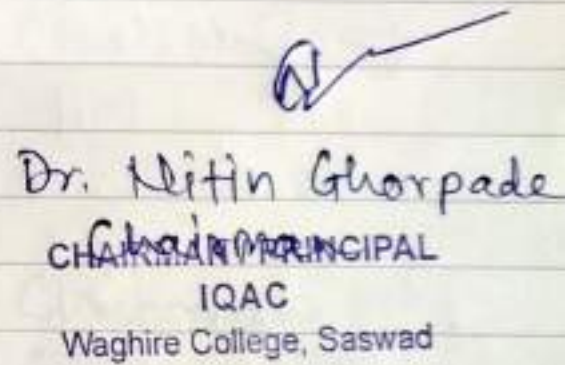 Dr. Nitin Ghorpade
Chairman
CHAIRMAN / PRINCIPAL
IQAC
Waghire College, Saswad